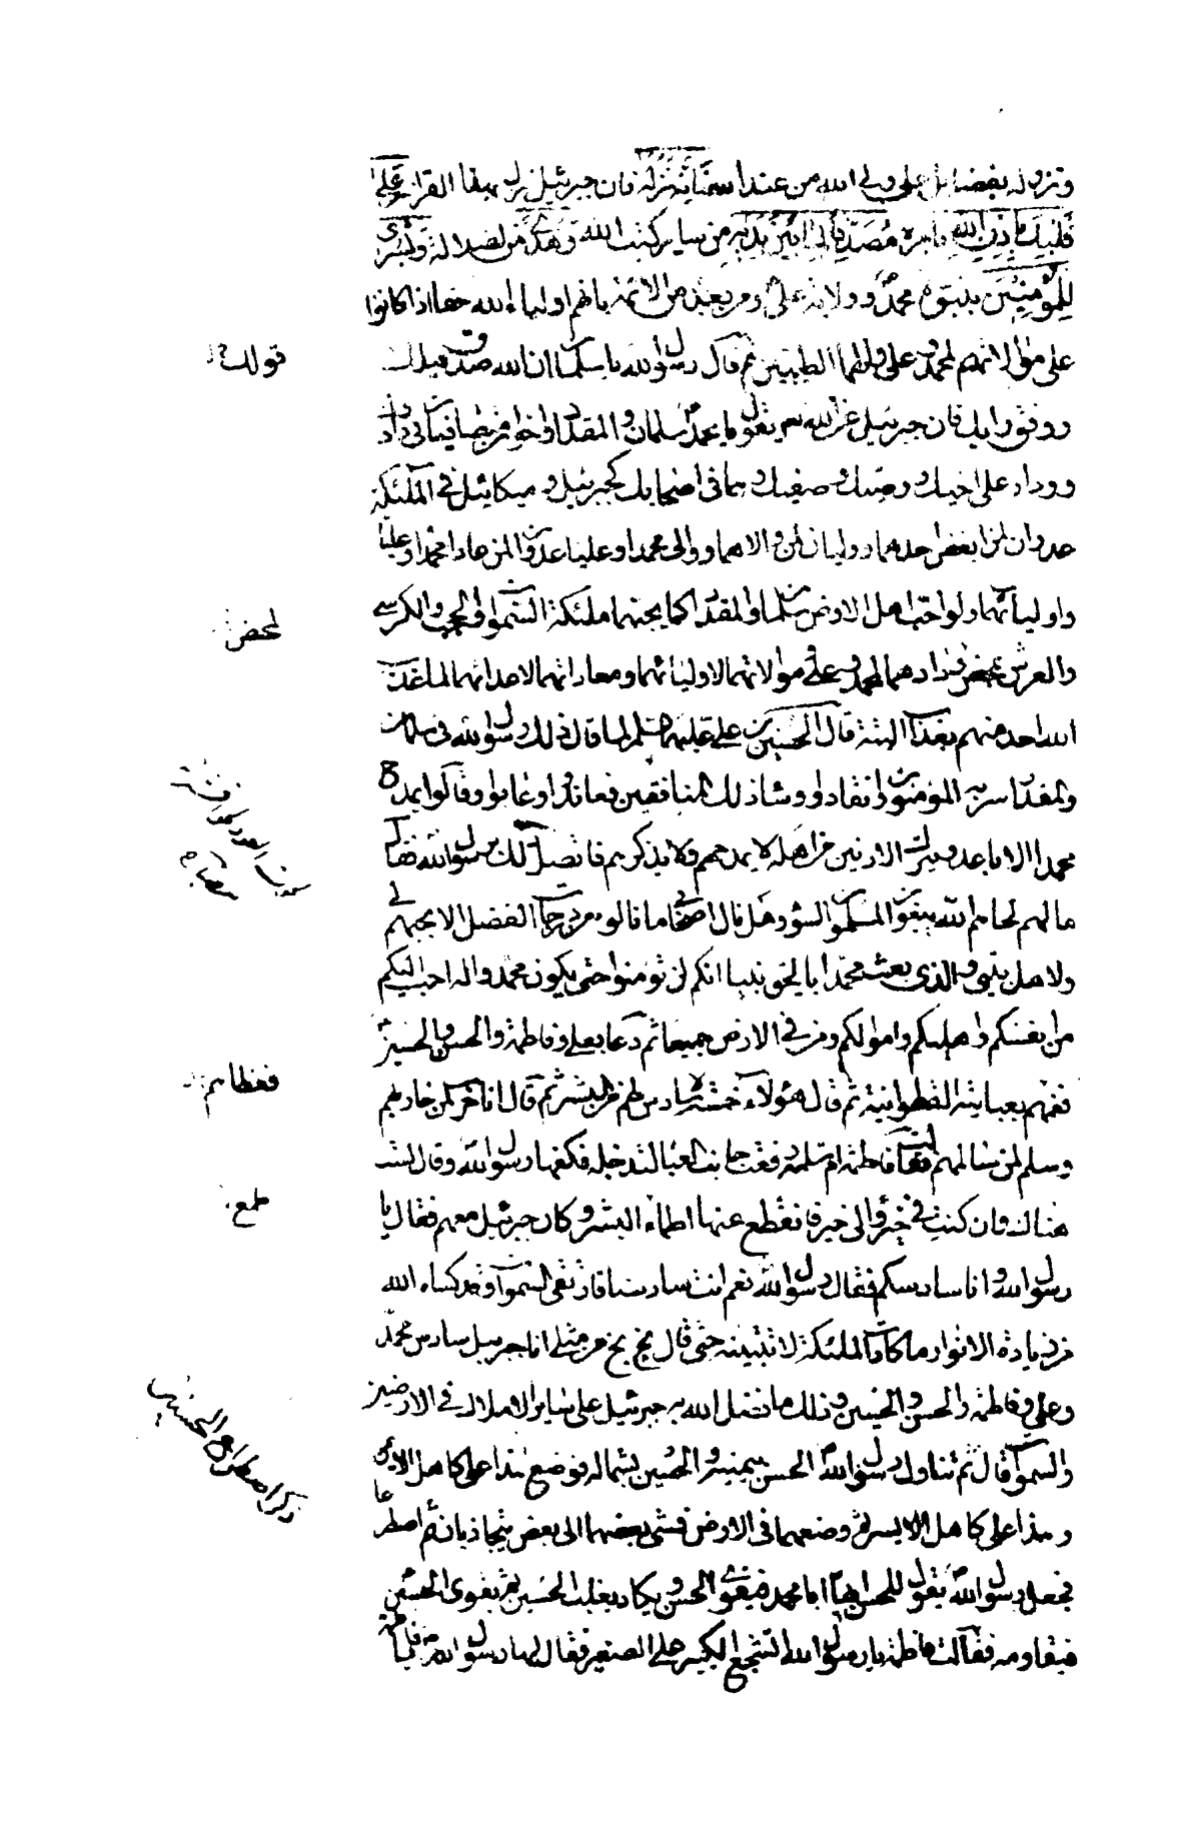 ونزوله بفضائل علي ولي الله من عند الله فانه نزله فان جبرئيل نزل بهذا القران على
قلبك باذن الله بامره مصدقا لما بين يديه من ساير كتب الله وهدى من الضلالة وبشرى
للمؤمنين بنبوة محمد وولاية علي ومن بعده من الائمة بانهم اولياء الله حقا اذا كانوا
على موالاتهم لمحمد وعلي والهما الطيبين ثم قال رسول الله يا سلمان ان الله صدق قيلك
قولك
ووفق رايك فان جبرئيل عن الله يقول يا محمد سلمان والمقداد اخوان متصافيان في ودادك
ووداد علي اخيك ووصيك وصفيك وهما في اصحابك كجبرئيل وميكائيل في الملئكة
عدوان لمن ابغض احدهما ووليان لمن والاهما ووالى محمدا وعليا عدوان لمن عادا محمدا وعليا
واوليائهما ولو احب اهل الارض سلمان والمقداد كما يحبهما ملئكة السموات والحجب والكرسي
لمحض
والعرش لمحض ودادهما لمحمد وعلي وموالاتهما لاوليائهما ومعاداتهما لاعدائهما لما عذب
الله احدا منهم بعذاب البتة قال الحسين بن علي عليهما السلم لما قال ذلك رسول الله في سلمان
والمقداد سر به المؤمنون وانقادوا وساء ذلك المنافقين فعاندوا وعابوا وقالوا يمدح
محمد الاباعد ويترك الادنين من اهله لا يمدحهم ولا يذكرهم فاتصل ذلك برسول الله فقال
ما لهم لحاهم الله يبغون للمسلمين السوء وهل نال اصحابي ما نالوه من درجات الفضل الا بحبهم لي
ولاهل بيتي والذي بعث محمدا بالحق نبيا انكم لن تؤمنوا حتى يكون محمد واله احب اليكم
من انفسكم واهليكم واموالكم ومن في الارض جميعا ثم دعا بعلي وفاطمة والحسن والحسين
فغطاهم
فغمهم بعبايته القطوانية ثم قال هؤلاء خمسة لا سادس لهم من البشر ثم قال انا حرب لمن حاربهم
وسلم لمن سالمهم فقالت ام سلمة ورفعت جانب العبا لتدخله فكفها رسول الله وقال لست
طمع
هناك وان كنت في خير والى خير فانقطع عنها اطماع البشر وكان جبرئيل معهم فقال يا
رسول الله وانا سادسكم فقال رسول الله نعم انت سادسنا فارتقى السموات وقد كساه الله
من زيادة الانوار ما كادت الملئكة لا تتبينه حتى قال بخ بخ من مثلي انا جبرئيل سادس محمد
وعلي وفاطمة والحسن والحسين وذلك ما فضل الله به جبرئيل على ساير الاملاك في الارضين
ذكر اصطراع الحسنين
والسموات قال ثم تناول رسول الله الحسن بيمينه والحسين بشماله فوضع هذا على كاهله الايمن
وهذا على كاهله الايسر ثم وضعهما في الارض فمشى بعضهما الى بعض يتجاذبان ثم اصطرعا
فجعل رسول الله يقول للحسن ايها ابا محمد فيقوى الحسن ويكاد يغلب الحسين ثم يقوى الحسين
فيقاومه فقالت فاطمة يا رسول الله اتشجع الكبير على الصغير فقال لها رسول الله يا فاطمة